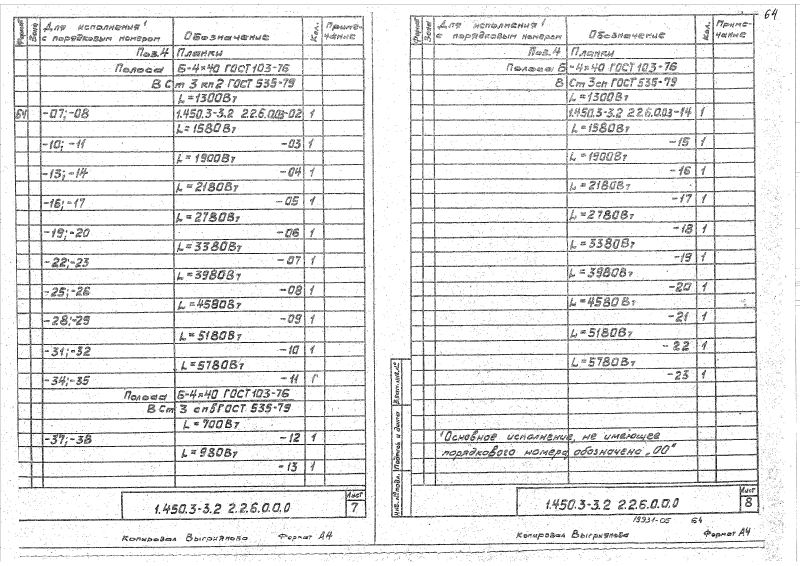 Формат
Зона
Для исполнения¹ с порядковым номером
Обозначение
Кол.
Примечание
Поз.4 Планки
Полоса Б-4×40 ГОСТ103-76
В Ст 3 кп2 ГОСТ 535-79
L=1300Вт
Б4 -07;-08 1.450.3-3.2 2.2.6.0.03-02 1
L=1580Вт
-10; -11 -03 1
L=1900Вт
-13; -14 -04 1
L=2180Вт
-16;-17 -05 1
L=2780Вт
-19;-20 -06 1
L=3380Вт
-22;-23 -07 1
L=3980Вт
-25;-26 -08 1
L=4580Вт
-28;-29 -09 1
L=5180Вт
-31;-32 -10 1
L=5780Вт
-34;-35 -11 1
Полоса Б-4×40 ГОСТ103-76
В Ст 3 сп5 ГОСТ 535-79
L=700Вт
-37;-38 -12 1
L=980Вт
-13 1
1.450.3-3.2 2.2.6.0.0.0
Лист
7
Копировал Выгриянова Формат А4
64
Формат
Зона
Для исполнения¹ с порядковым номером
Обозначение
Кол.
Примечание
Поз.4 Планки
Полоса Б-4×40 ГОСТ103-76
В Ст 3сп ГОСТ 535-79
L=1300Вт
1.450.3-3.2 2.2.6.0.03-14 1
L=1580Вт
-15 1
L=1900Вт
-16 1
L=2180Вт
-17 1
L=2780Вт
-18 1
L=3380Вт
-19 1
L=3980Вт
-20 1
L=4580Вт
-21 1
L=5180Вт
-22 1
L=5780Вт
-23 1
¹Основное исполнение, не имеющее
порядкового номера обозначено „00"
Инв.№подл. Подпись и дата Взам.инв.№
1.450.3-3.2 2.2.6.0.0.0
Лист
8
19931-05 64
Копировал Выгриянова Формат А4